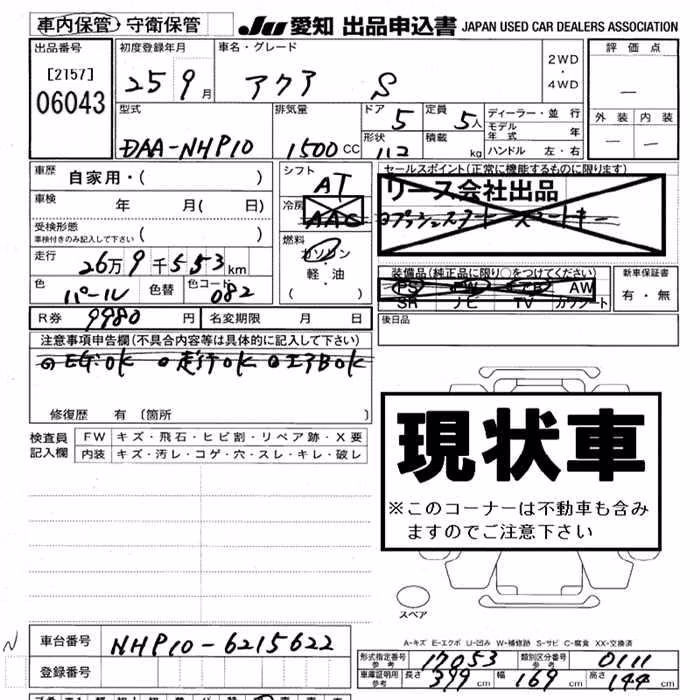 車内保管・守衛保管 JU 愛知 出品申込書 JAPAN USED CAR DEALERS ASSOCIATION
出品番号 初度登録年月 車名・グレード 2WD・4WD 評価点
[2157] 25 9月 アクア S —
06043
型式 排気量 ドア 5 定員 5人 ディーラー・並行 外装 内装
DAA-NHP10 1500CC 形状 112 積載 kg モデル年式 年 — —
ハンドル 左・右
車歴 自家用・( ) シフト AT セールスポイント(正常に機能するものに限ります)
車検 年 月( 日) 冷房 AAC リース会社出品
受検形態 プッシュスタート スマートキー
車検付きのみ記入して下さい
走行 26万9千553km 燃料 ガソリン・軽・油 ( ) 装備品(純正品に限り○をつけてください) 新車保証書
色 パール 色替 色コード 082 PS PW AW 有・無
SR ナビ TV カワシート
R券 9980円 名変期限 月 日 後日品
注意事項申告欄(不具合内容等は具体的に記入して下さい)
EG.OK 走行OK エアBOK
修復歴 有 〔箇所 〕
検査員記入欄 FW キズ・飛石・ヒビ割・リペア跡・X要
内装 キズ・汚レ・コゲ・穴・スレ・キレ・破レ
現状車
※このコーナーは不動車も含み
ますのでご注意下さい
スペア
A-キズ E-エクボ U-凹み W-補修跡 S-サビ C-腐食 XX-交換済
N 車台番号 NHP10-6215622
形式指定番号 参考 17053 類別区分番号 参考 0111
登録番号 車庫証明用 参考 長さ 399cm 幅 169cm 高さ 144cm